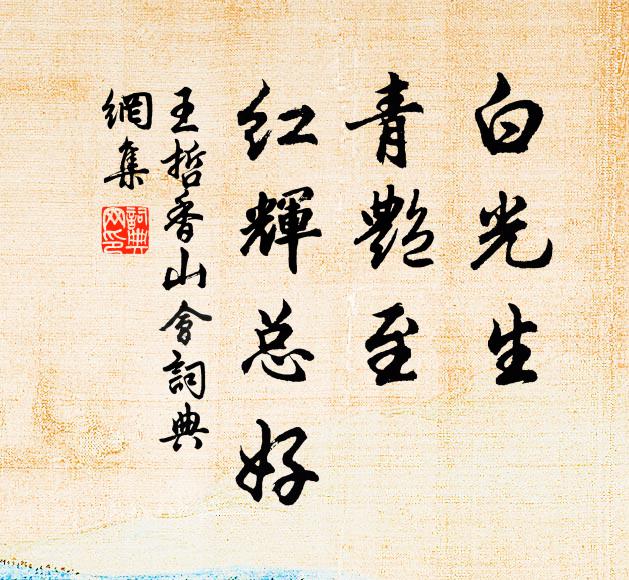 白光生
青艷至
紅輝总好
王哲香山會詞典
網集
詞典
网印